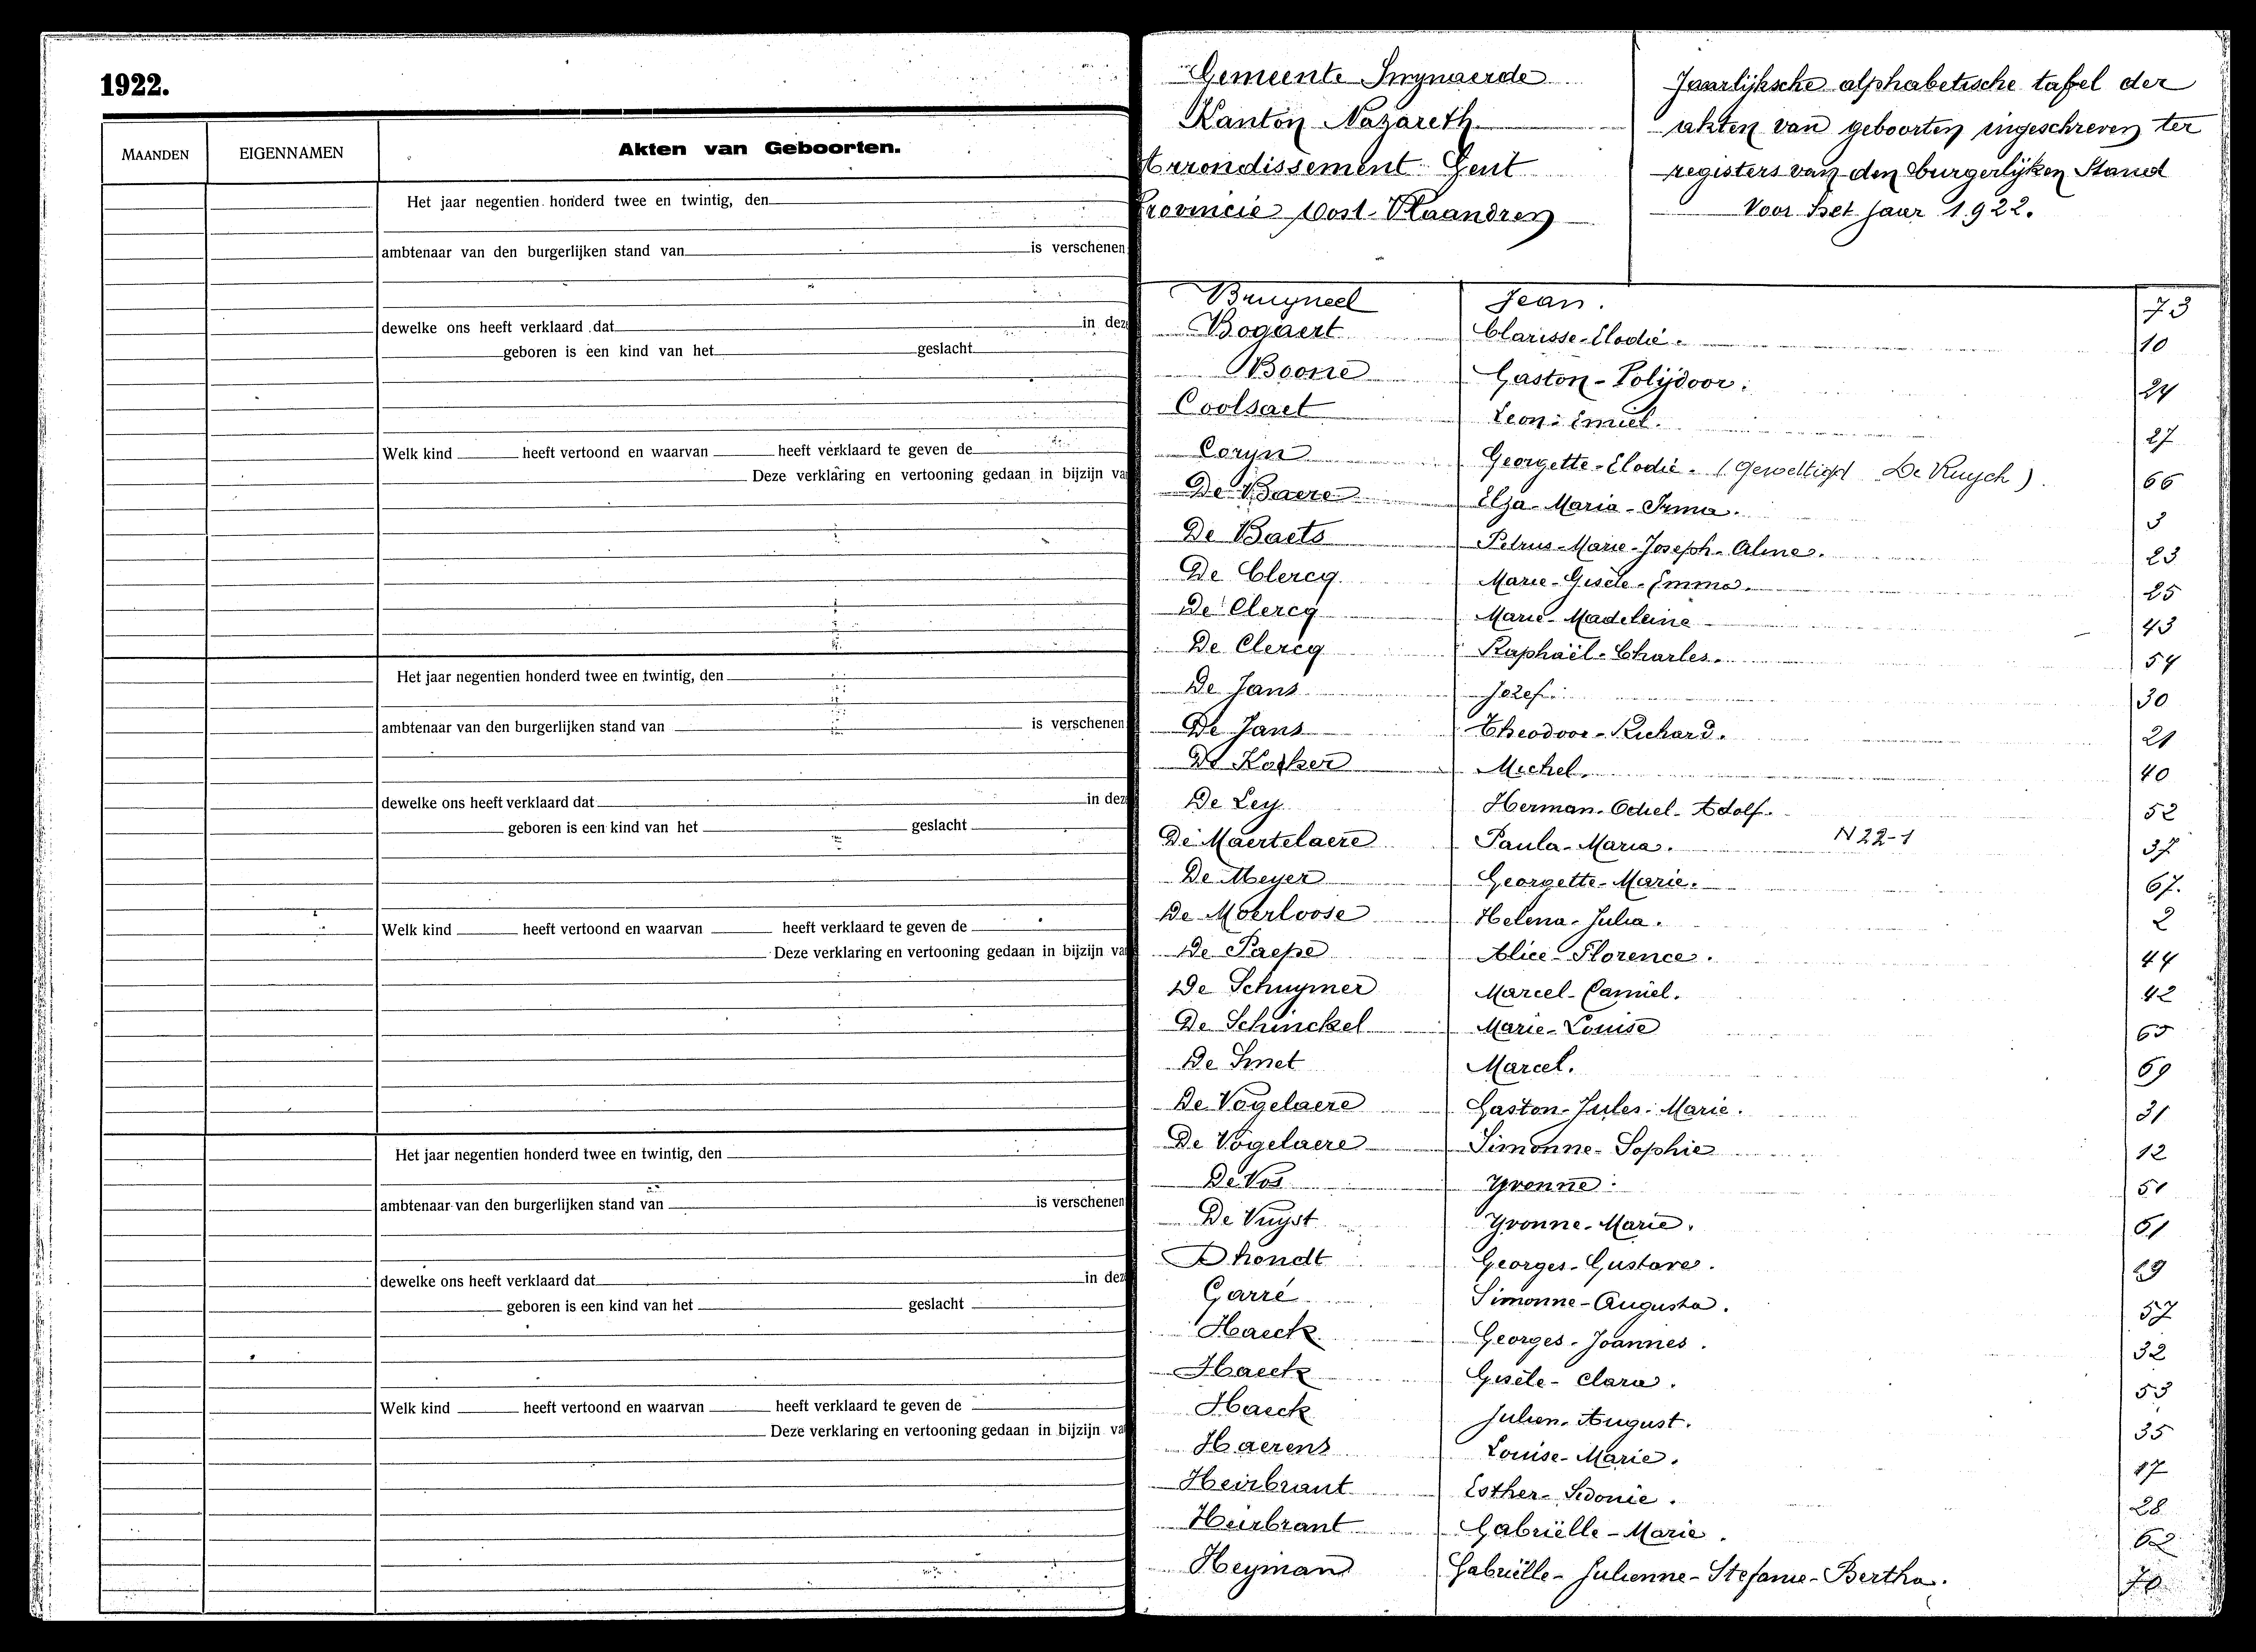 1922.
MAANDEN EIGENNAMEN Akten van Geboorten.
Het jaar negentien honderd twee en twintig, den
ambtenaar van den burgerlijken stand van is verschenen
dewelke ons heeft verklaard dat in dez
geboren is een kind van het geslacht
Welk kind heeft vertoond en waarvan heeft verklaard te geven de
Deze verklaring en vertooning gedaan in bijzijn va
Het jaar negentien honderd twee en twintig, den
ambtenaar van den burgerlijken stand van is verschenen
dewelke ons heeft verklaard dat in dez
geboren is een kind van het geslacht
Welk kind heeft vertoond en waarvan heeft verklaard te geven de
Deze verklaring en vertooning gedaan in bijzijn va
Het jaar negentien honderd twee en twintig, den
ambtenaar van den burgerlijken stand van is verschenen
dewelke ons heeft verklaard dat in dez
geboren is een kind van het geslacht
Welk kind heeft vertoond en waarvan heeft verklaard te geven de
Deze verklaring en vertooning gedaan in bijzijn va
Gemeente Swynaerde
Kanton Nazareth
Arrondissement Gent
Provincie Oost-Vlaandren
Jaarlijksche alphabetische tafel der
akten van geboorten ingeschreven ter
registers van den burgerlijken Stand
Voor het jaar 1922.
Bruyneel Jean. 73
Bogaert Clarisse-Elodie. 10
Boone Gaston-Polijdoor. 24
Coolsaet Leon-Emiel. 27
Coryn Georgette-Elodie. (Gewettigd De Ruysch). 66
De Baere Elza-Maria-Irma. 3
De Baets Petrus-Marie-Joseph-Aline. 23
De Clercq Marie-Gisèle-Emma. 25
De Clercq Marie-Madeleine 43
De Clercq Raphaël-Charles. 54
De Jans Jozef. 30
De Jans Theodoor-Richard. 21
De Kesker Michel. 40
De Ley Herman-Odiel-Adolf. 52
De Maertelaere Paula-Maria. N 22-1 37
De Meyer Georgette-Marie. 67.
De Moerloose Helena-Julia. 2
De Paepe Alice-Florence. 44
De Schuymer Marcel-Camiel. 42
De Schinckel Marie-Louise 65
De Smet Marcel. 69
De Vogelaere Gaston-Jules-Marie. 31
De Vogelaere Simonne-Sophie 12
De Vos Yvonne. 51
De Vuyst Yvonne-Marie. 61
Dhondt Georges-Gustave. 29
Garré Simonne-Augusta. 57
Haeck Georges-Joannes. 32
Haeck Gisèle-Clara. 53
Haeck Julien-August. 35
Haerens Louise-Marie. 17
Heirbrant Esther-Sidonie. 28
Heirbrant Gabriëlle-Marie. 62
Heyman Gabriëlle-Julienne-Stefanie-Bertha.